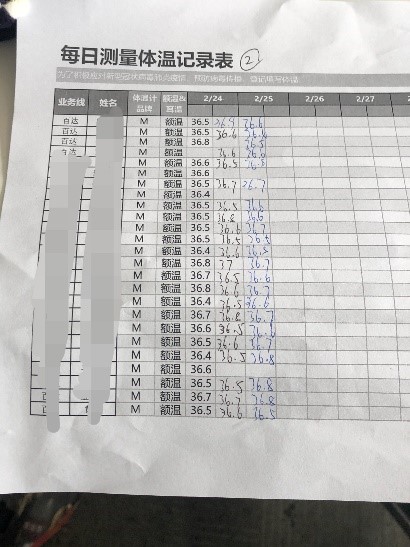 每日测量体温记录表 ②
为了积极应对新型冠状病毒肺炎疫情,
业务线 姓名 体温计品牌 额温&耳温 2/24 2/25 2/26 2/27
百达 M 额温 36.5 36.9 36.6
百达 M 额温 36.5 36.6
百达 M 额温 36.8
百达 M 额温
M 额温 36.6 36.5
M 额温 36.6
M 额温 36.5 36.7 36.7
M 额温 36.4
M 额温 36.5 36.5 36.6
M 额温 36.5 36.8 36.6
M 额温 36.5 36.6 36.7
M 额温 36.5 36.5 36.5
M 额温 36.4 36.6
M 额温 36.8 37 36.7
M 额温 36.7 36.5 36.6
M 额温 36.8 36.6 36.7
M 额温 36.4 36.5 36.6
M 额温 36.7 36.8 36.7
M 额温 36.6 36.5
M 额温 36.5 36.6 36.7
M 额温 36.4 36.5 36.8
M 额温 36.6
M 额温 36.5 36.5 36.8
M 额温 36.7 36.7 36.8
M 额温 36.5 36.6 36.5